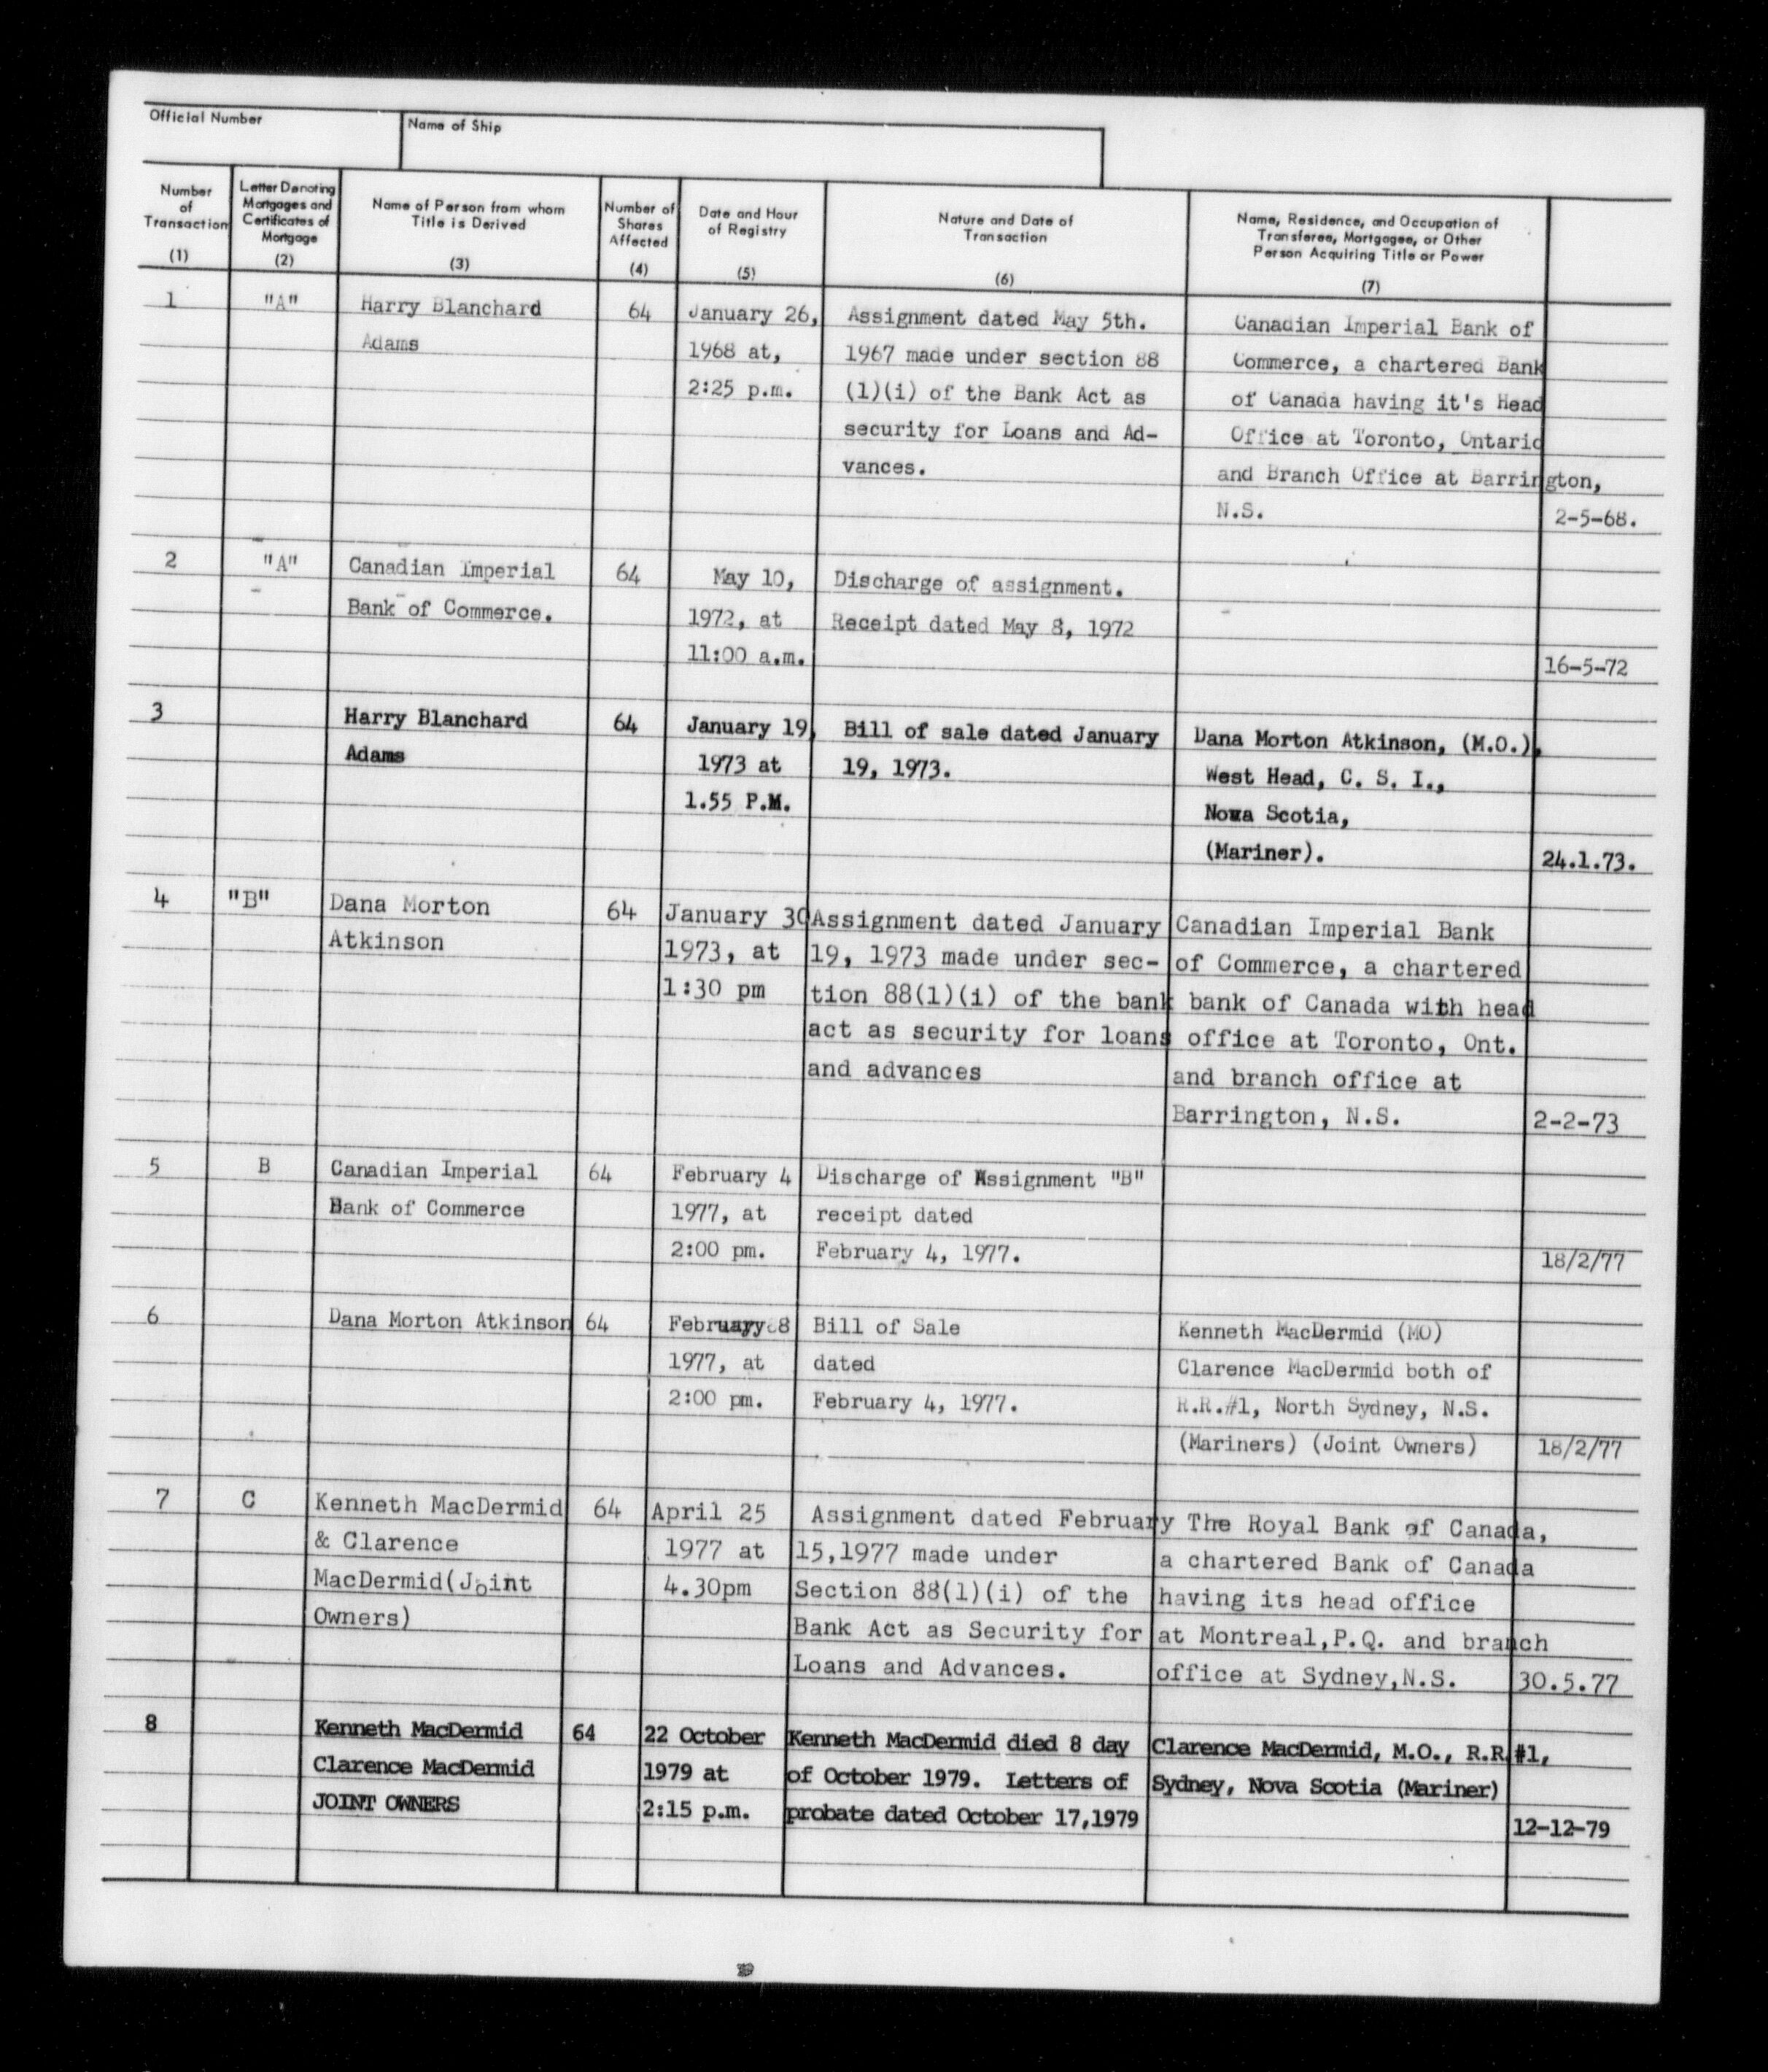 Official Number
Name of Ship
Number
of
Transaction
(1)
Letter Denoting
Mortgages and
Certificates of
Mortgage
(2)
Name of Person from whom
Title is Derived
(3)
Number of
Shares
Affected
(4)
Date and Hour
of Registry
(5)
Nature and Date of
Transaction
(6)
Name, Residence, and Occupation of
Transferee, Mortgagee, or Other
Person Acquiring Title or Power
(7)
1
"A"
Harry Blanchard
Adams
64
January 26,
1968 at,
2:25 p.m.
Assignment dated May 5th.
1967 made under section 88
(1)(i) of the Bank Act as
security for Loans and Ad-
vances.
Canadian Imperial Bank of
Commerce, a chartered Bank
of Canada having it's Head
Office at Toronto, Ontario
and Branch Office at Barrington,
N.S.
2-5-68.
2
"A"
Canadian Imperial
Bank of Commerce.
64
May 10,
1972, at
11:00 a.m.
Discharge of assignment.
Receipt dated May 8, 1972
16-5-72
3
Harry Blanchard
Adams
64
January 19,
1973 at
1.55 P.M.
Bill of sale dated January
19, 1973.
Dana Morton Atkinson, (M.O.),
West Head, C. S. I.,
Nova Scotia,
(Mariner).
24.1.73.
4
"B"
Dana Morton
Atkinson
64
January 30
1973, at
1:30 pm
Assignment dated January
19, 1973 made under sec-
tion 88(1)(i) of the bank
act as security for loans
and advances
Canadian Imperial Bank
of Commerce, a chartered
bank of Canada with head
office at Toronto, Ont.
and branch office at
Barrington, N.S.
2-2-73
5
B
Canadian Imperial
Bank of Commerce
64
February 4
1977, at
2:00 pm.
Discharge of Assignment "B"
receipt dated
February 4, 1977.
18/2/77
6
Dana Morton Atkinson
64
February 8
1977, at
2:00 pm.
Bill of Sale
dated
February 4, 1977.
Kenneth MacDermid (MO)
Clarence MacDermid both of
R.R.#1, North Sydney, N.S.
(Mariners) (Joint Owners)
18/2/77
7
C
Kenneth MacDermid
& Clarence
MacDermid(Joint
Owners)
64
April 25
1977 at
4.30pm
Assignment dated February
15,1977 made under
Section 88(1)(i) of the
Bank Act as Security for
Loans and Advances.
The Royal Bank of Canada,
a chartered Bank of Canada
having its head office
at Montreal,P.Q. and branch
office at Sydney,N.S.
30.5.77
8
Kenneth MacDermid
Clarence MacDermid
JOINT OWNERS
64
22 October
1979 at
2:15 p.m.
Kenneth MacDermid died 8 day
of October 1979. Letters of
probate dated October 17,1979
Clarence MacDermid, M.O., R.R.#1,
Sydney, Nova Scotia (Mariner)
12-12-79